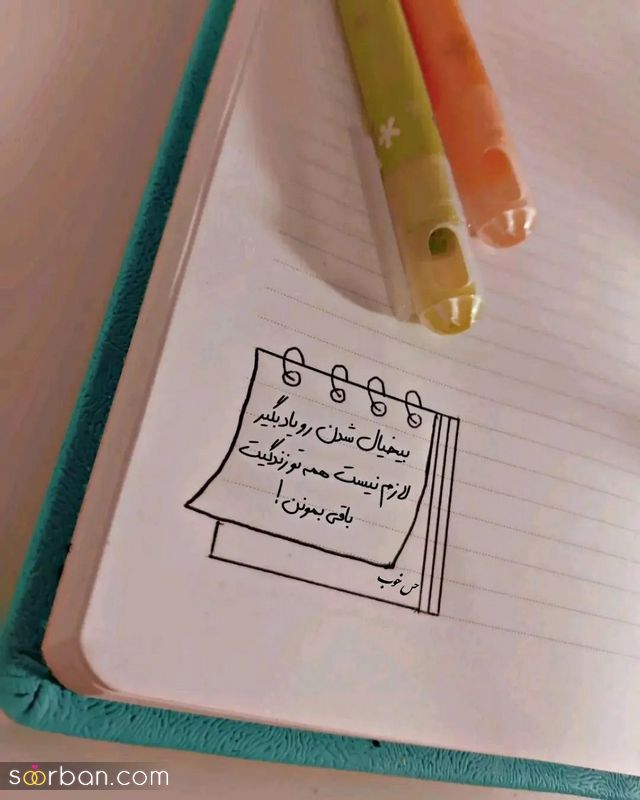 بیخیال شدن رو یاد بگیر
لازم نیست همه تو زندگیت
باقی بمونن!
حس خوب
soorban.com